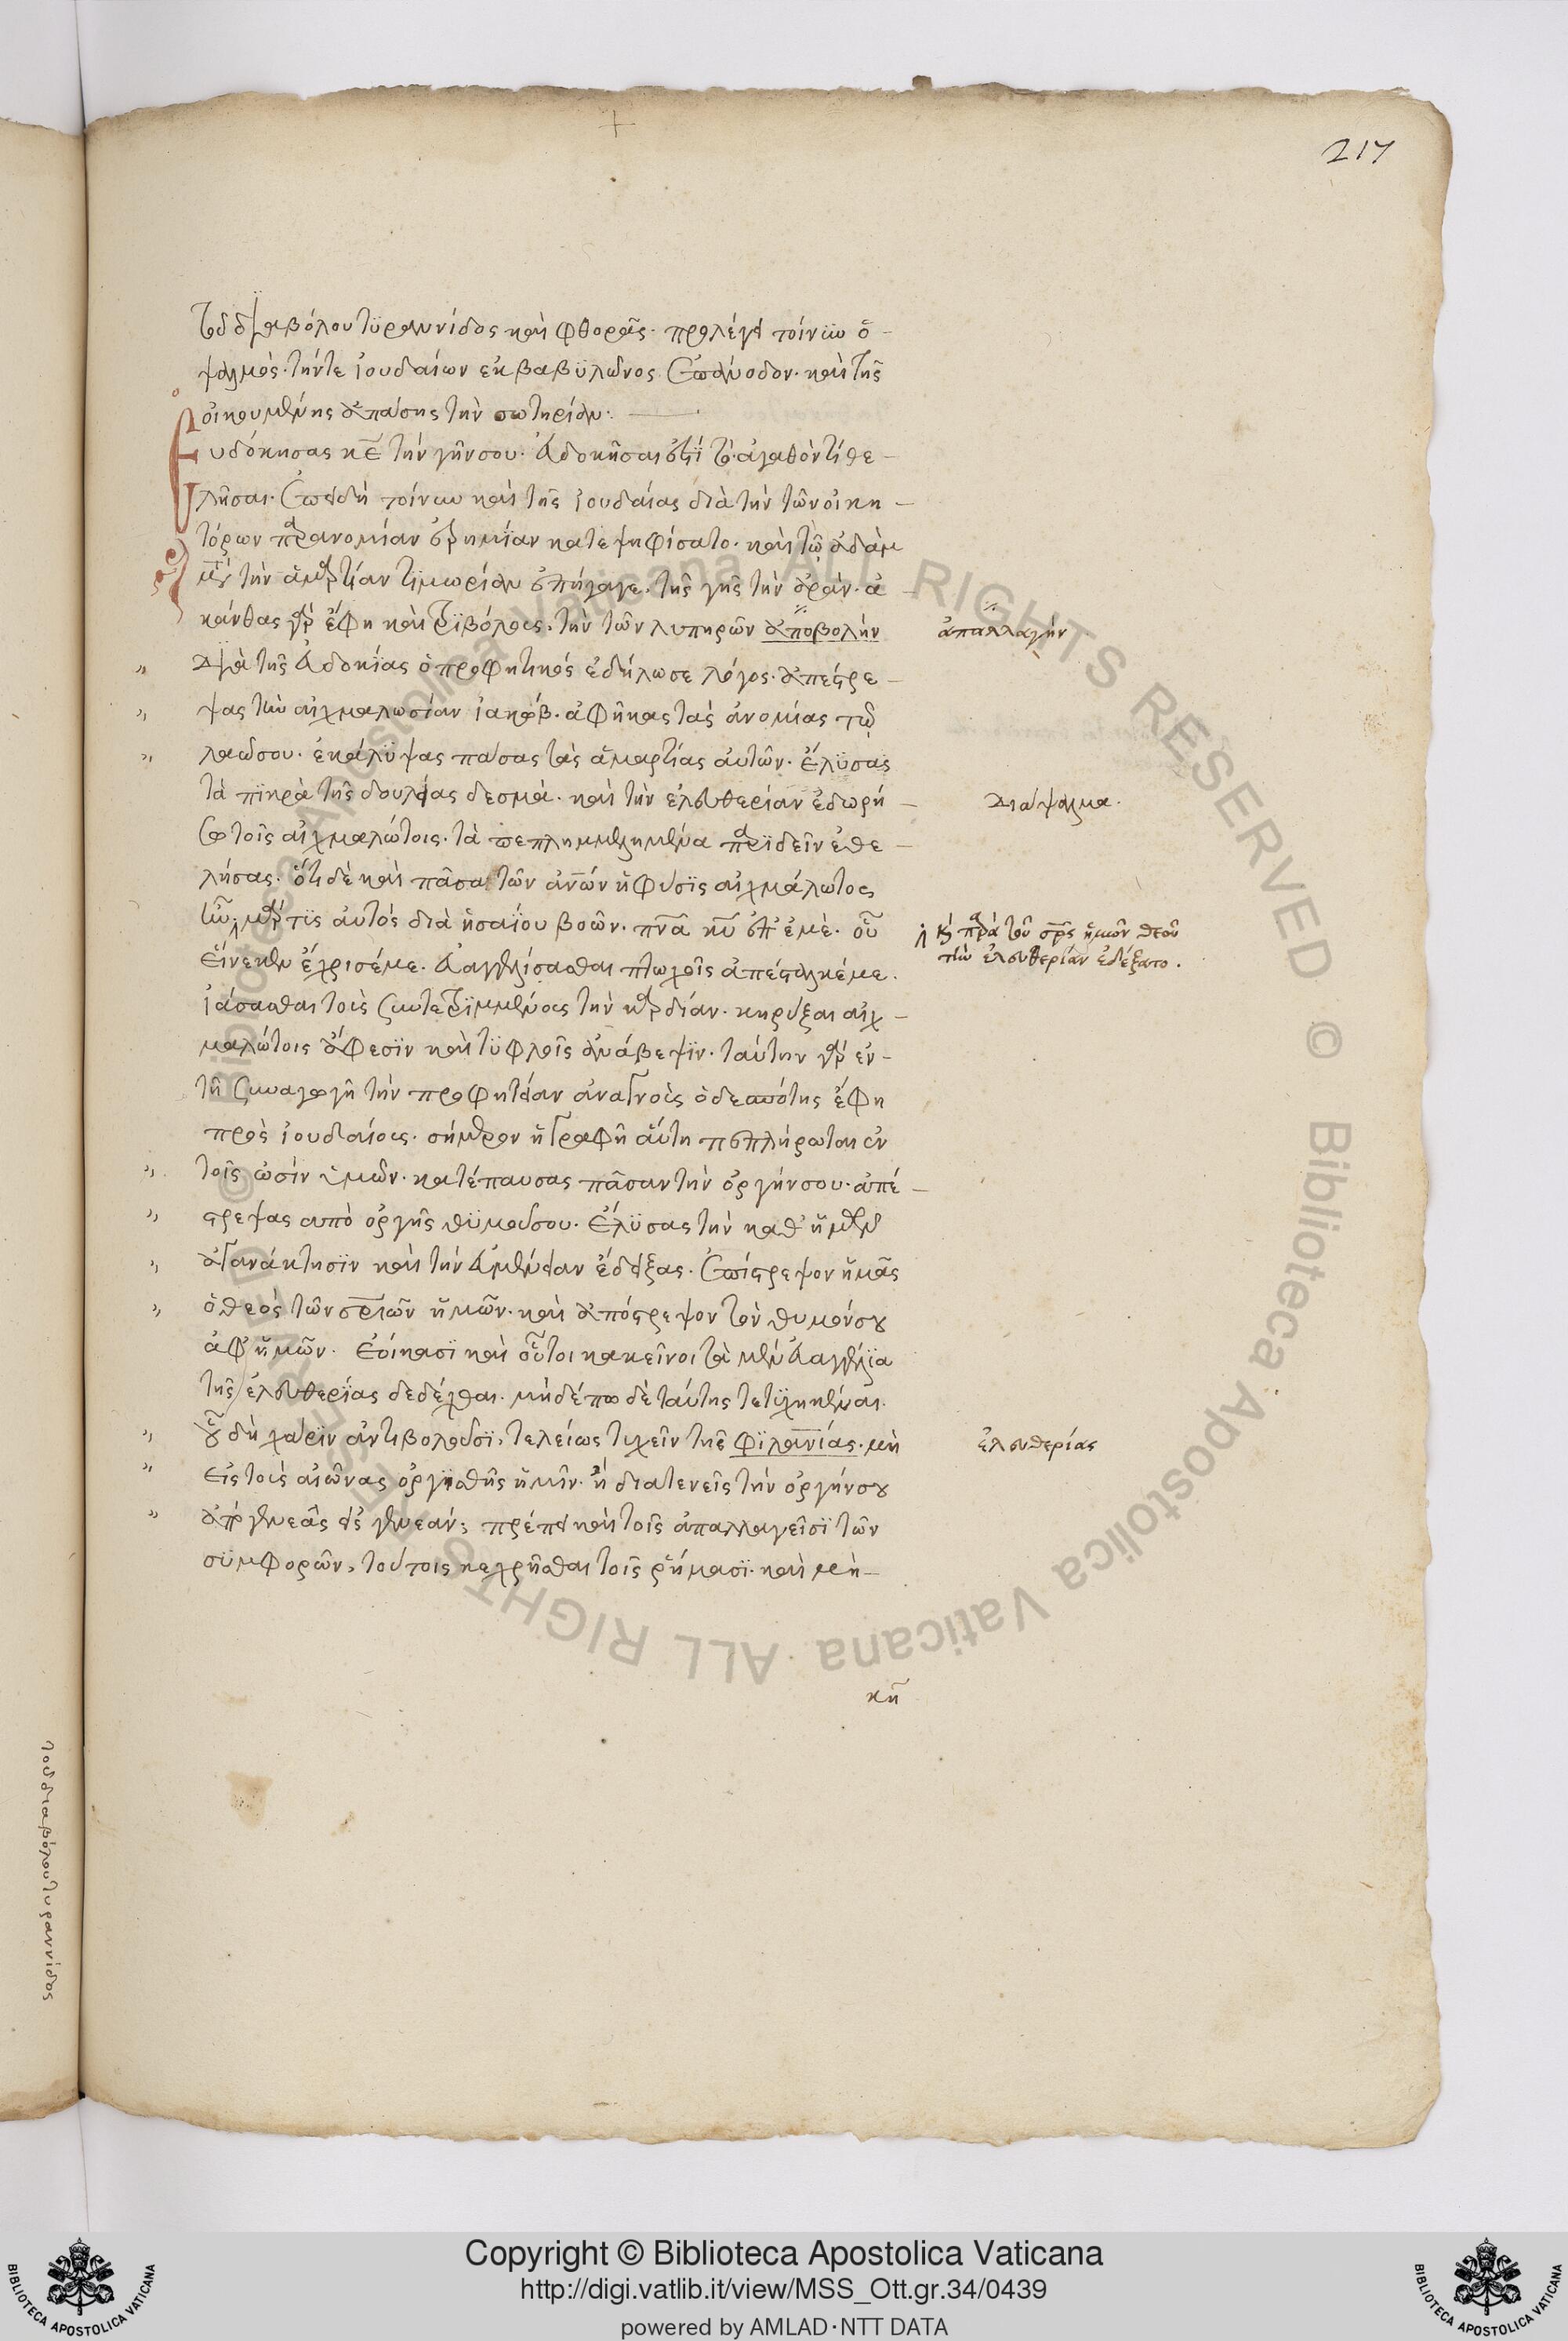 217
τοῦ διαβόλου τυραννίδος καὶ φθορᾶς· προλέγει τοίνυν ὁ
ψαλμὸς· τήντε ἰουδαίων ἐκ βαβυλῶνος ἐπάνοδον· καὶ τῆς
οἰκουμένης ἁπάσης τὴν σωτηρίαν:
Ευδόκησας κε τὴν γῆν σου· εὐδοκῆσαι ἐστὶ τὸ ἀγαθόν τι θε
λῆσαι· ἐπειδὴ τοίνυν καὶ τῆς ἰουδαίας διὰ τὴν τῶν οἰκη
τόρων παρανομίαν ἐρημίαν κατεψηφίσατο· καὶ τῶ ἀδὰμ
μετὰ τὴν ἁμαρτίαν τιμωρίαν ἐπήγαγε, τῆς γῆς τὴν ἀρὰν· ἀ
κάνθας γάρ ἔφη καὶ τριβόλους, τὴν τῶν λυπηρῶν ἀποβολὴν
ἀπαλλαγὴν
διὰ τῆς εὐδοκίας ὁ προφητικός ἐδήλωσε λόγος· ἀπέστρε
ψας τὴν αἰχμαλωσίαν ἰακώβ· ἀφῆκας τὰς ἀνομίας τῷ
λαῶ σου· ἐκάλυψας πάσας τὰς ἁμαρτίας αὐτῶν· ἔλυσας
τὰ πικρὰ τῆς δουλείας δεσμὰ· καὶ τὴν ἐλευθερίαν ἐδωρή
διάψαλμα·
σω τοῖς αἰχμαλώτοις· τὰ πεπλημμελημένα παριδεῖν ἐθε
λήσας· ὅτι δὲ καὶ πᾶσα τῶν ἀνων ἡ φύσις αἰχμάλωτος
ἦν, μάρτυς αὐτός διὰ ἡσαΐου βοῶν· πνα κυ ἐπ' ἐμὲ· οὗ
ἡ καὶ παρὰ τοῦ σρς ἡμῶν θεοῦ
τὴν ἐλευθερίαν ἐδέξατο·
εἵνεκεν ἔχρισέ με· εὐαγγελίσασθαι πτωχοῖς ἀπέσταλκέ με·
ἰάσασθαι τοὺς συντετριμμένους τὴν καρδίαν· κηρύξαι αἰχ
μαλώτοις ἄφεσιν καὶ τυφλοῖς ἀνάβεψιν· ταύτην γάρ ἐν
τῆ συναγωγῆ τὴν προφητείαν ἀναγνοὺς ὁ δεσπότης ἔφη
πρὸς ἰουδαίους· σήμερον ἡ γραφὴ αὕτη πεπλήρωται ἐν
τοῖς ὠσὶν ὑμῶν· κατέπαυσας πᾶσαν τὴν ὀργήν σου· ἀπέ
στρεψας ἀπὸ ὀργῆς θυμοῦ σου· ἔλυσας τὴν καθ' ἡμῶν
ἀγανάκτησιν καὶ τὴν εὐμένειαν ἔδειξας· ἐπίστρεψον ἡμᾶς
ὁ θεὸς τῶν σριῶν ἡμῶν· καὶ ἀπόστρεψον τὸν θυμόν σου
ἀφ' ἡμῶν· ἐοίκασι καὶ οὗτοι κακεῖνοι τὰ μὲν εὐαγγέλια
τῆς ἐλευθερίας δεδέχθαι· μηδέπω δὲ ταύτης τετυχηκέναι·
οὗ δὴ χάριν ἀντιβολοῦσι, τελείως τυχεῖν τῆς φιλανίας· μὴ
ἐλευθερίας
εἰς τοὺς αἰῶνας ὀργισθῆς ἡμῖν· ἢ διατενεῖς τὴν ὀργήν σου
ἀπὸ γενεᾶς εἰς γενεάν; πρέπει καὶ τοῖς ἀπαλλαγεῖσι τῶν
συμφορῶν, τούτοις κεχρῆσθαι τοῖς ῥήμασι· καὶ μὴ
κη
τοῦ διαβόλου τυραννίδος
Copyright © Biblioteca Apostolica Vaticana
http://digi.vatlib.it/view/MSS_Ott.gr.34/0439
powered by AMLAD·NTT DATA